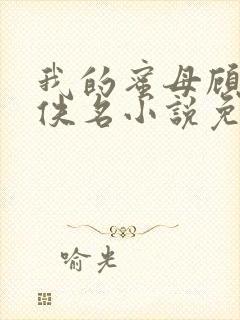 我的蜜母顾
佚名小说免
喻光